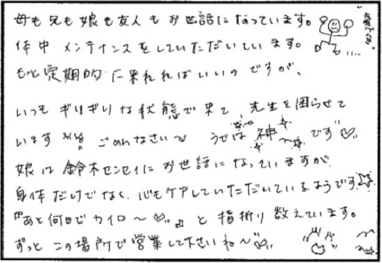 母も兄も娘も友人もお世話になっています。
体中メンテナンスをしていただいています。
もっと定期的に来れればいいのですが、
いつもギリギリな状態で来て、先生を困らせて
います ごめんなさい〜 うでは神です♡
娘は鈴木センセイにお世話になっていますが
身体だけでなく、心もケアしていただいているようです
『あと何日でカイロ〜♡』と指折り数えています。
ずっとこの場所で営業して下さいね〜♡